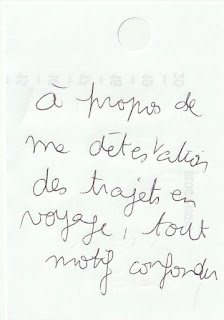 à propos de
ma détestation
des trajets en
voyage, tout
motif confondu